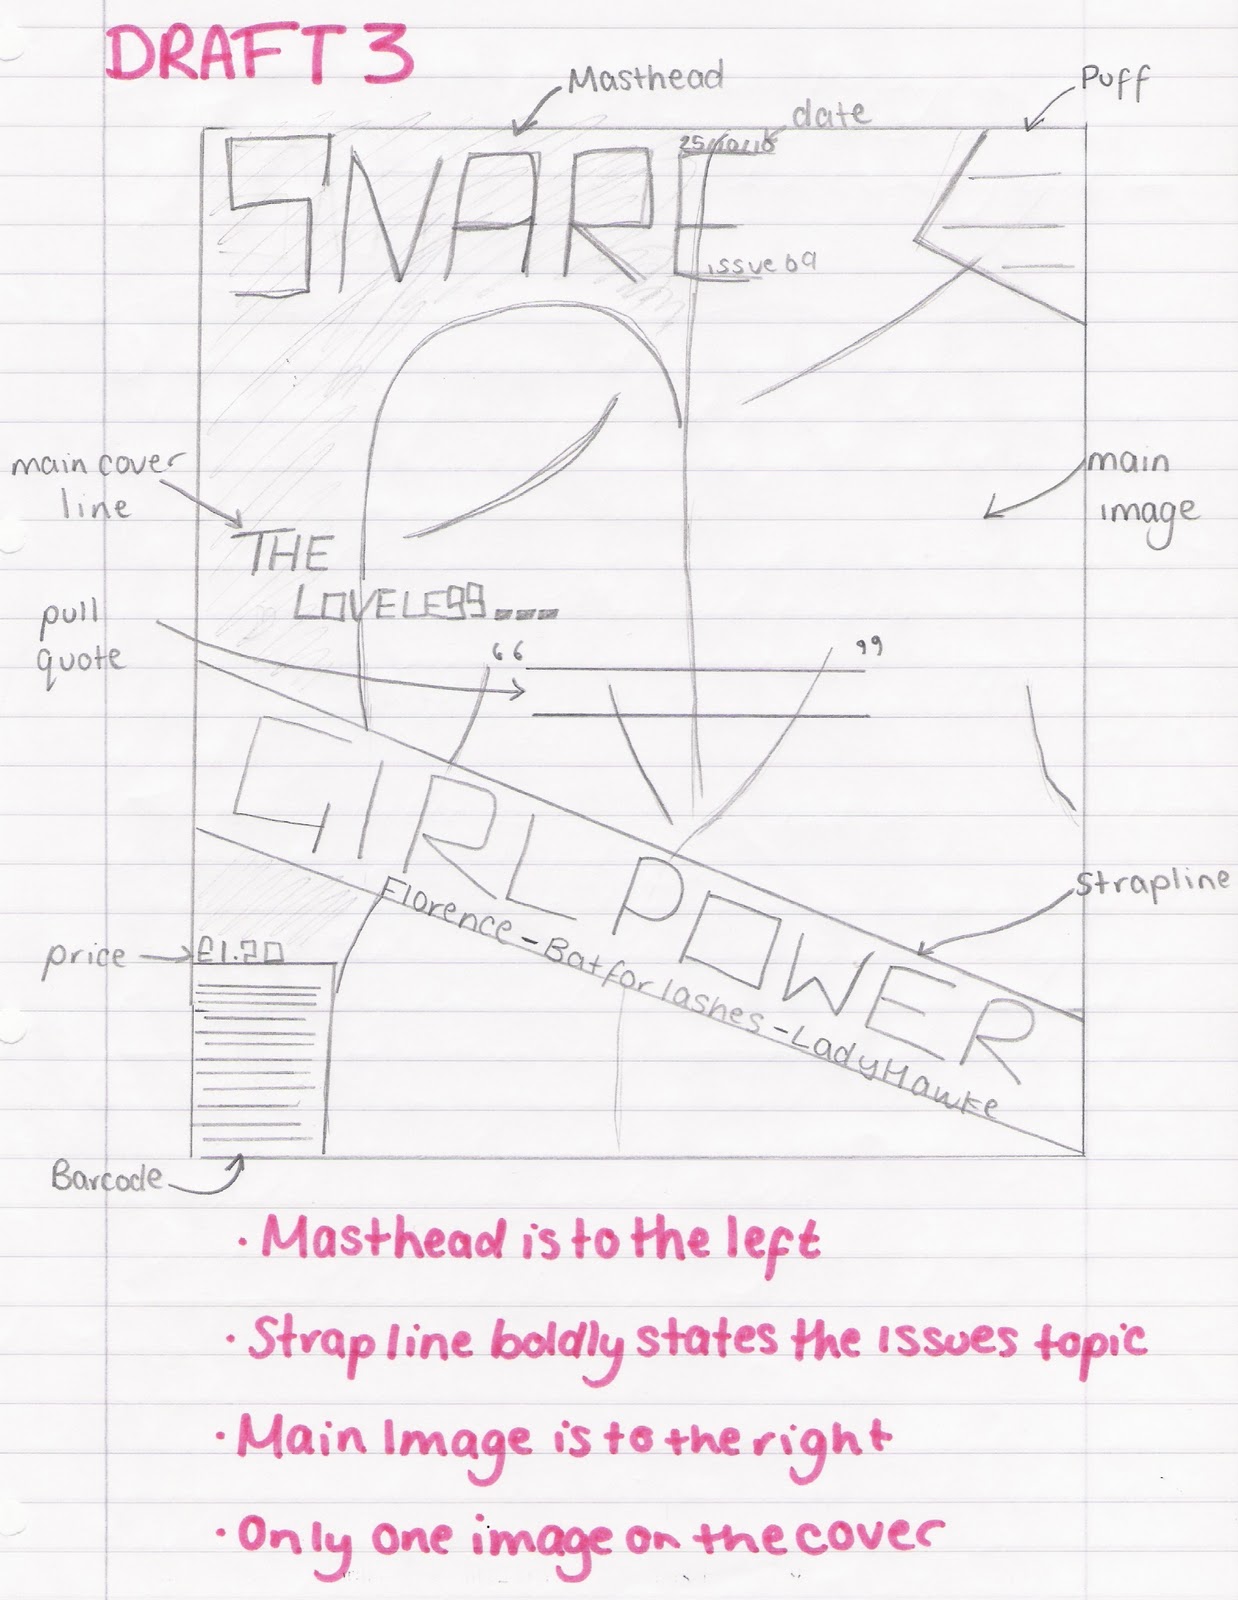 DRAFT 3
Masthead
Puff
date
SNARE
25/10/10
issue 69
main cover
line
main
image
THE
LOVELESS...
pull
quote
“ ”
GIRL POWER
Strapline
Florence - Bat for lashes - Lady Hawke
price
£1.20
Barcode
· Masthead is to the left
· Strapline boldly states the issues topic
· Main Image is to the right
· Only one image on the cover